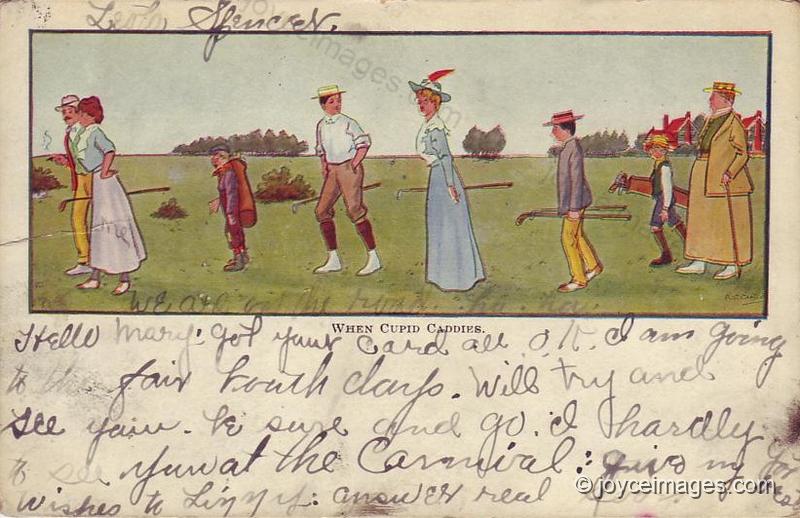 Leola Spencer.
joyceimages.com
We are on the
WHEN CUPID CADDIES.
Hello Mary: got your card all O.K. I am going
to the fair fourth days. Will try and
see you. be sure and go. I hardly
to see you at the Carnival: give my
Wishes to Lizzy: answer real
© joyceimages.com